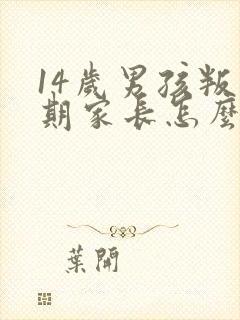 14歲男孩叛
期家長怎麼
葉開